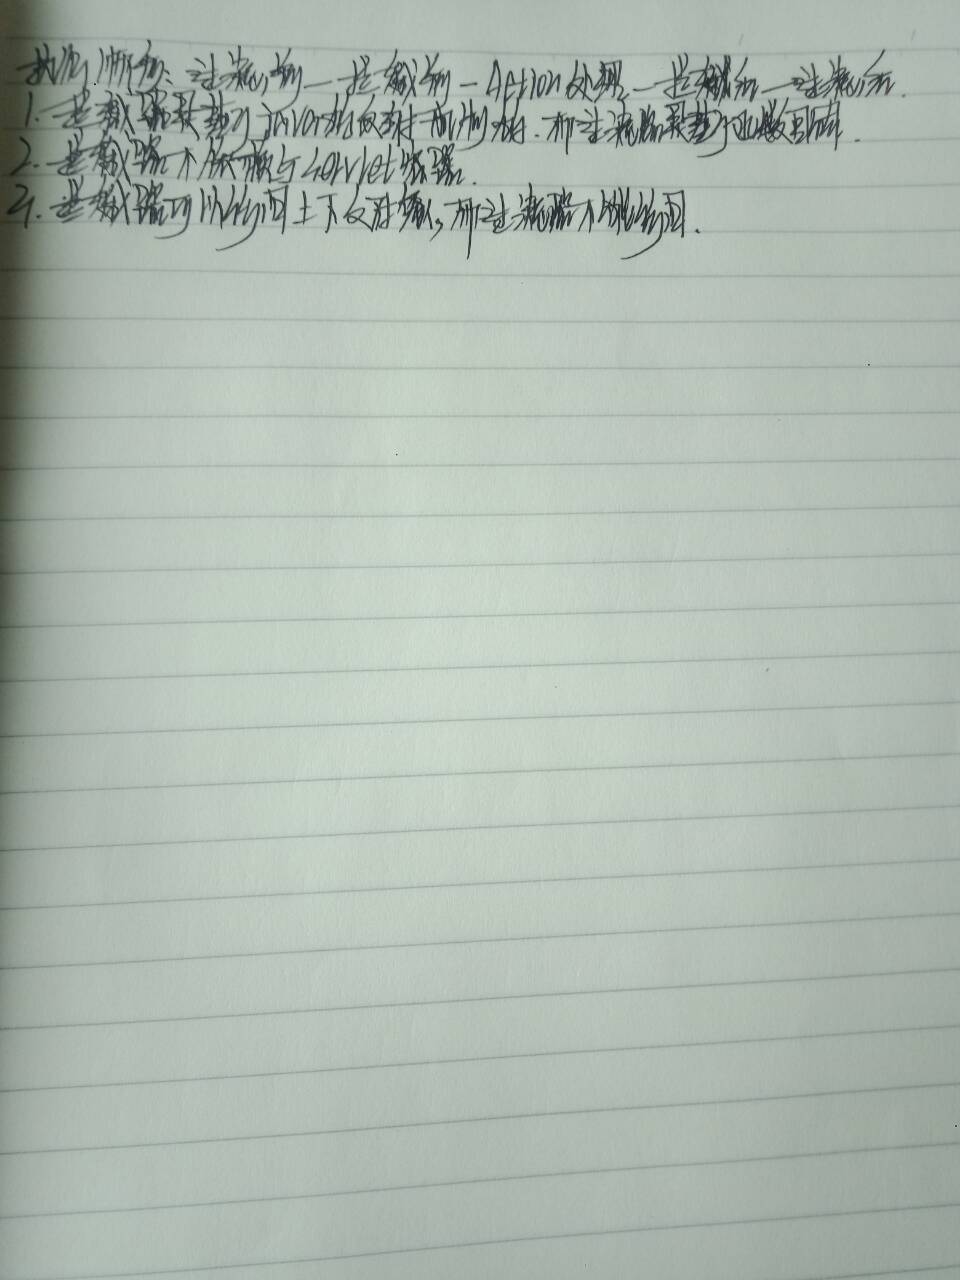 执行顺序：过滤前—拦截前—Action处理—拦截后—过滤后.
1.拦截器是基于java的反射机制的.而过滤器是基于函数回调.
2.拦截器不依赖与servlet容器.
3.拦截器可以访问上下文对象，而过滤器不能访问.